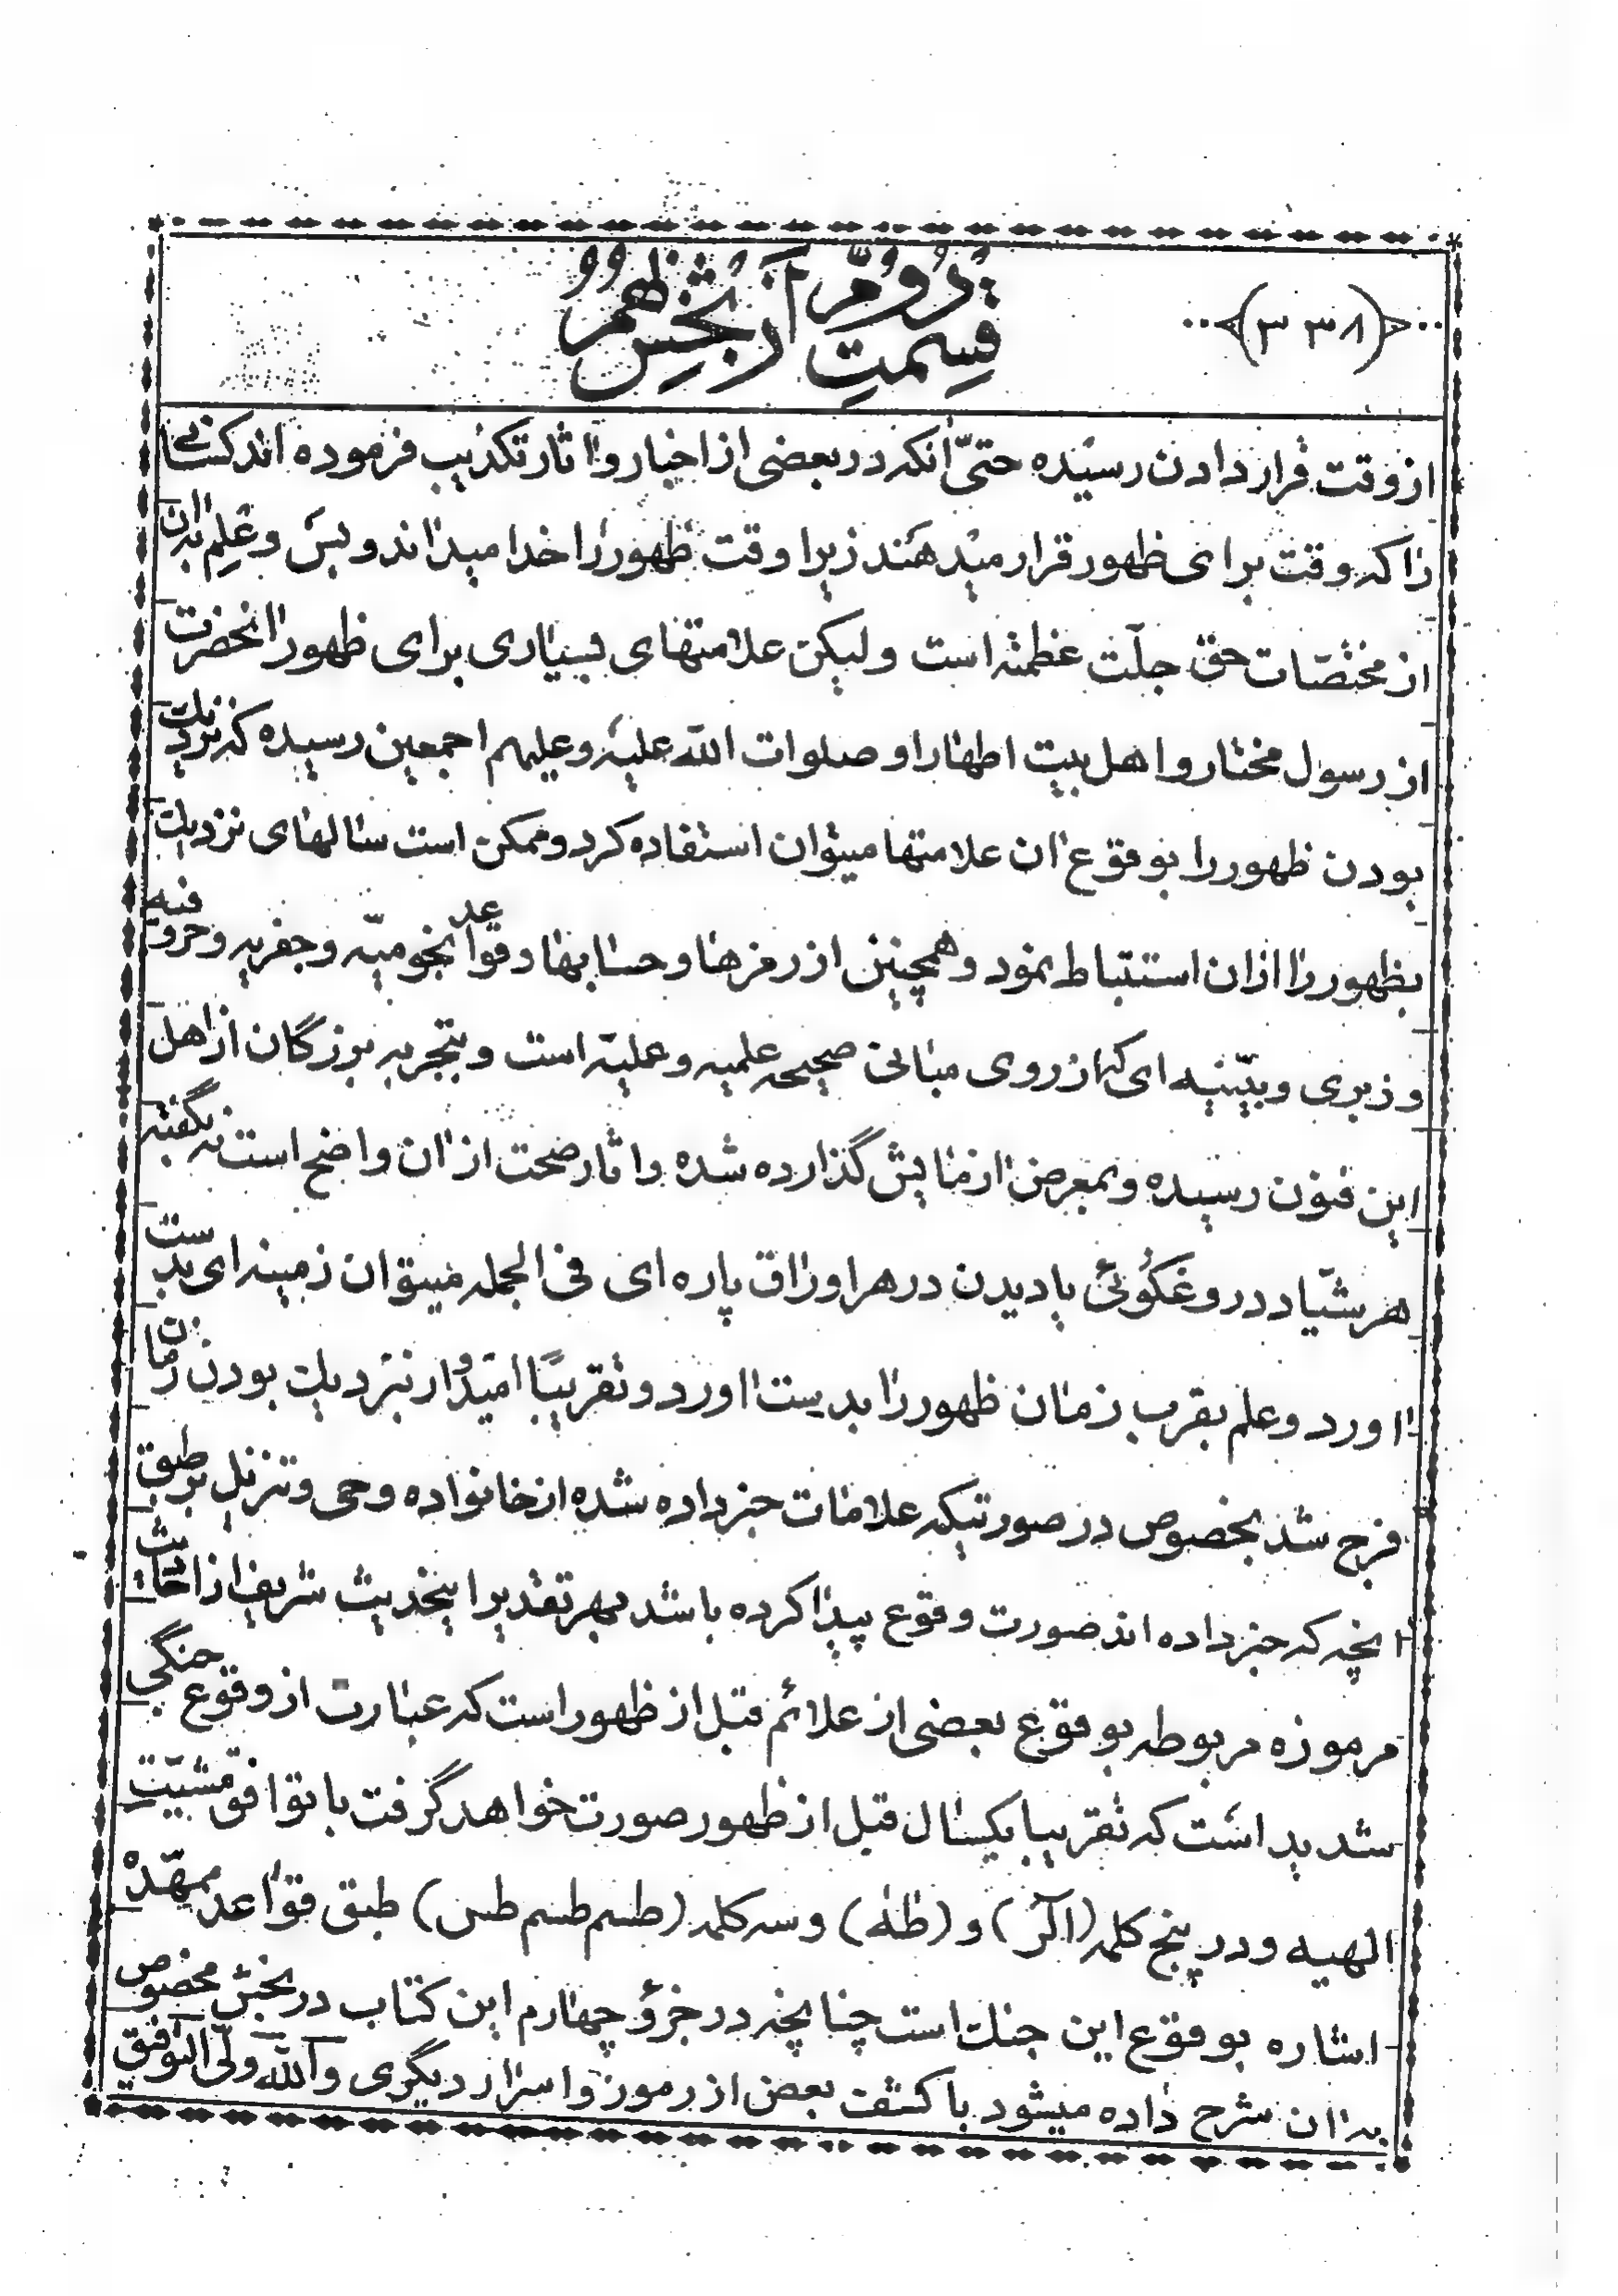 ﴿۳۳۸﴾
قسمت دوم از بخش نهم
از وقت قرار دادن رسیده حتّی آنکه در بعضی از اخبار و اثار تکذیب فرموده اند کسانی
را که وقت برای ظهور قرار میدهند زیرا وقت ظهور را خدا میداند و بس و علم به ان
از مختصّات حق جلّت عظمته است ولیکن علامتهای بسیاری برای ظهور انحضرت
از رسول مختار و اهل بیت اطهار او صلوات الله علیه و علیهم اجمعین رسیده که نزدیک
بودن ظهور را بوقوع ان علامتها میتوان استفاده کرد و ممکن است سالهای نزدیک
بظهور را از ان استنباط نمود و همچنین از رمزها و حسابها و قواعد نجومیّه و جفریه و حروفیه
و زبری و بیّنیه ای که از روی مبانی صحیحه علمیه و عملیّه است و بتجربه بزرگان از اهل
این فنون رسیده و بمعرض ازمایش گذارده شده و اثار صحت از ان واضح است نه بگفته
هر شیّاد دروغگوئی یا دیدن در هر اوراق پاره ای فی الجمله میتوان زمینه ای بدست
اورد و علم بقرب زمان ظهور را بدست اورد و تقریبًا امیدوار بنزدیک بودن زمان
فرج شد بخصوص در صورتیکه علامات خبر داده شده از خانواده وحی و تنزیل بر طبق
انچه که خبر داده اند صورت وقوع پیدا کرده باشد بهر تقدیر اینحدیث شریف از احادیث
مرموزه مربوطه بوقوع بعضی از علائم قبل از ظهور است که عبارت از وقوع جنگی
شدید است که تقریبا یکسال قبل از ظهور صورت خواهد گرفت با توافق مشیّت
الهیه و در پنج کلمه (الٓر) و (طٰهٰ) و سه کلمه (طسم طسم طس) طبق قواعد ممهّده
اشاره بوقوع این جنک است چنانچه در جزؤ چهارم این کتاب در بخش مخصوص
به ان شرح داده میشود با کشف بعض از رموز و اسرار دیگری والله ولیّ التوفیق